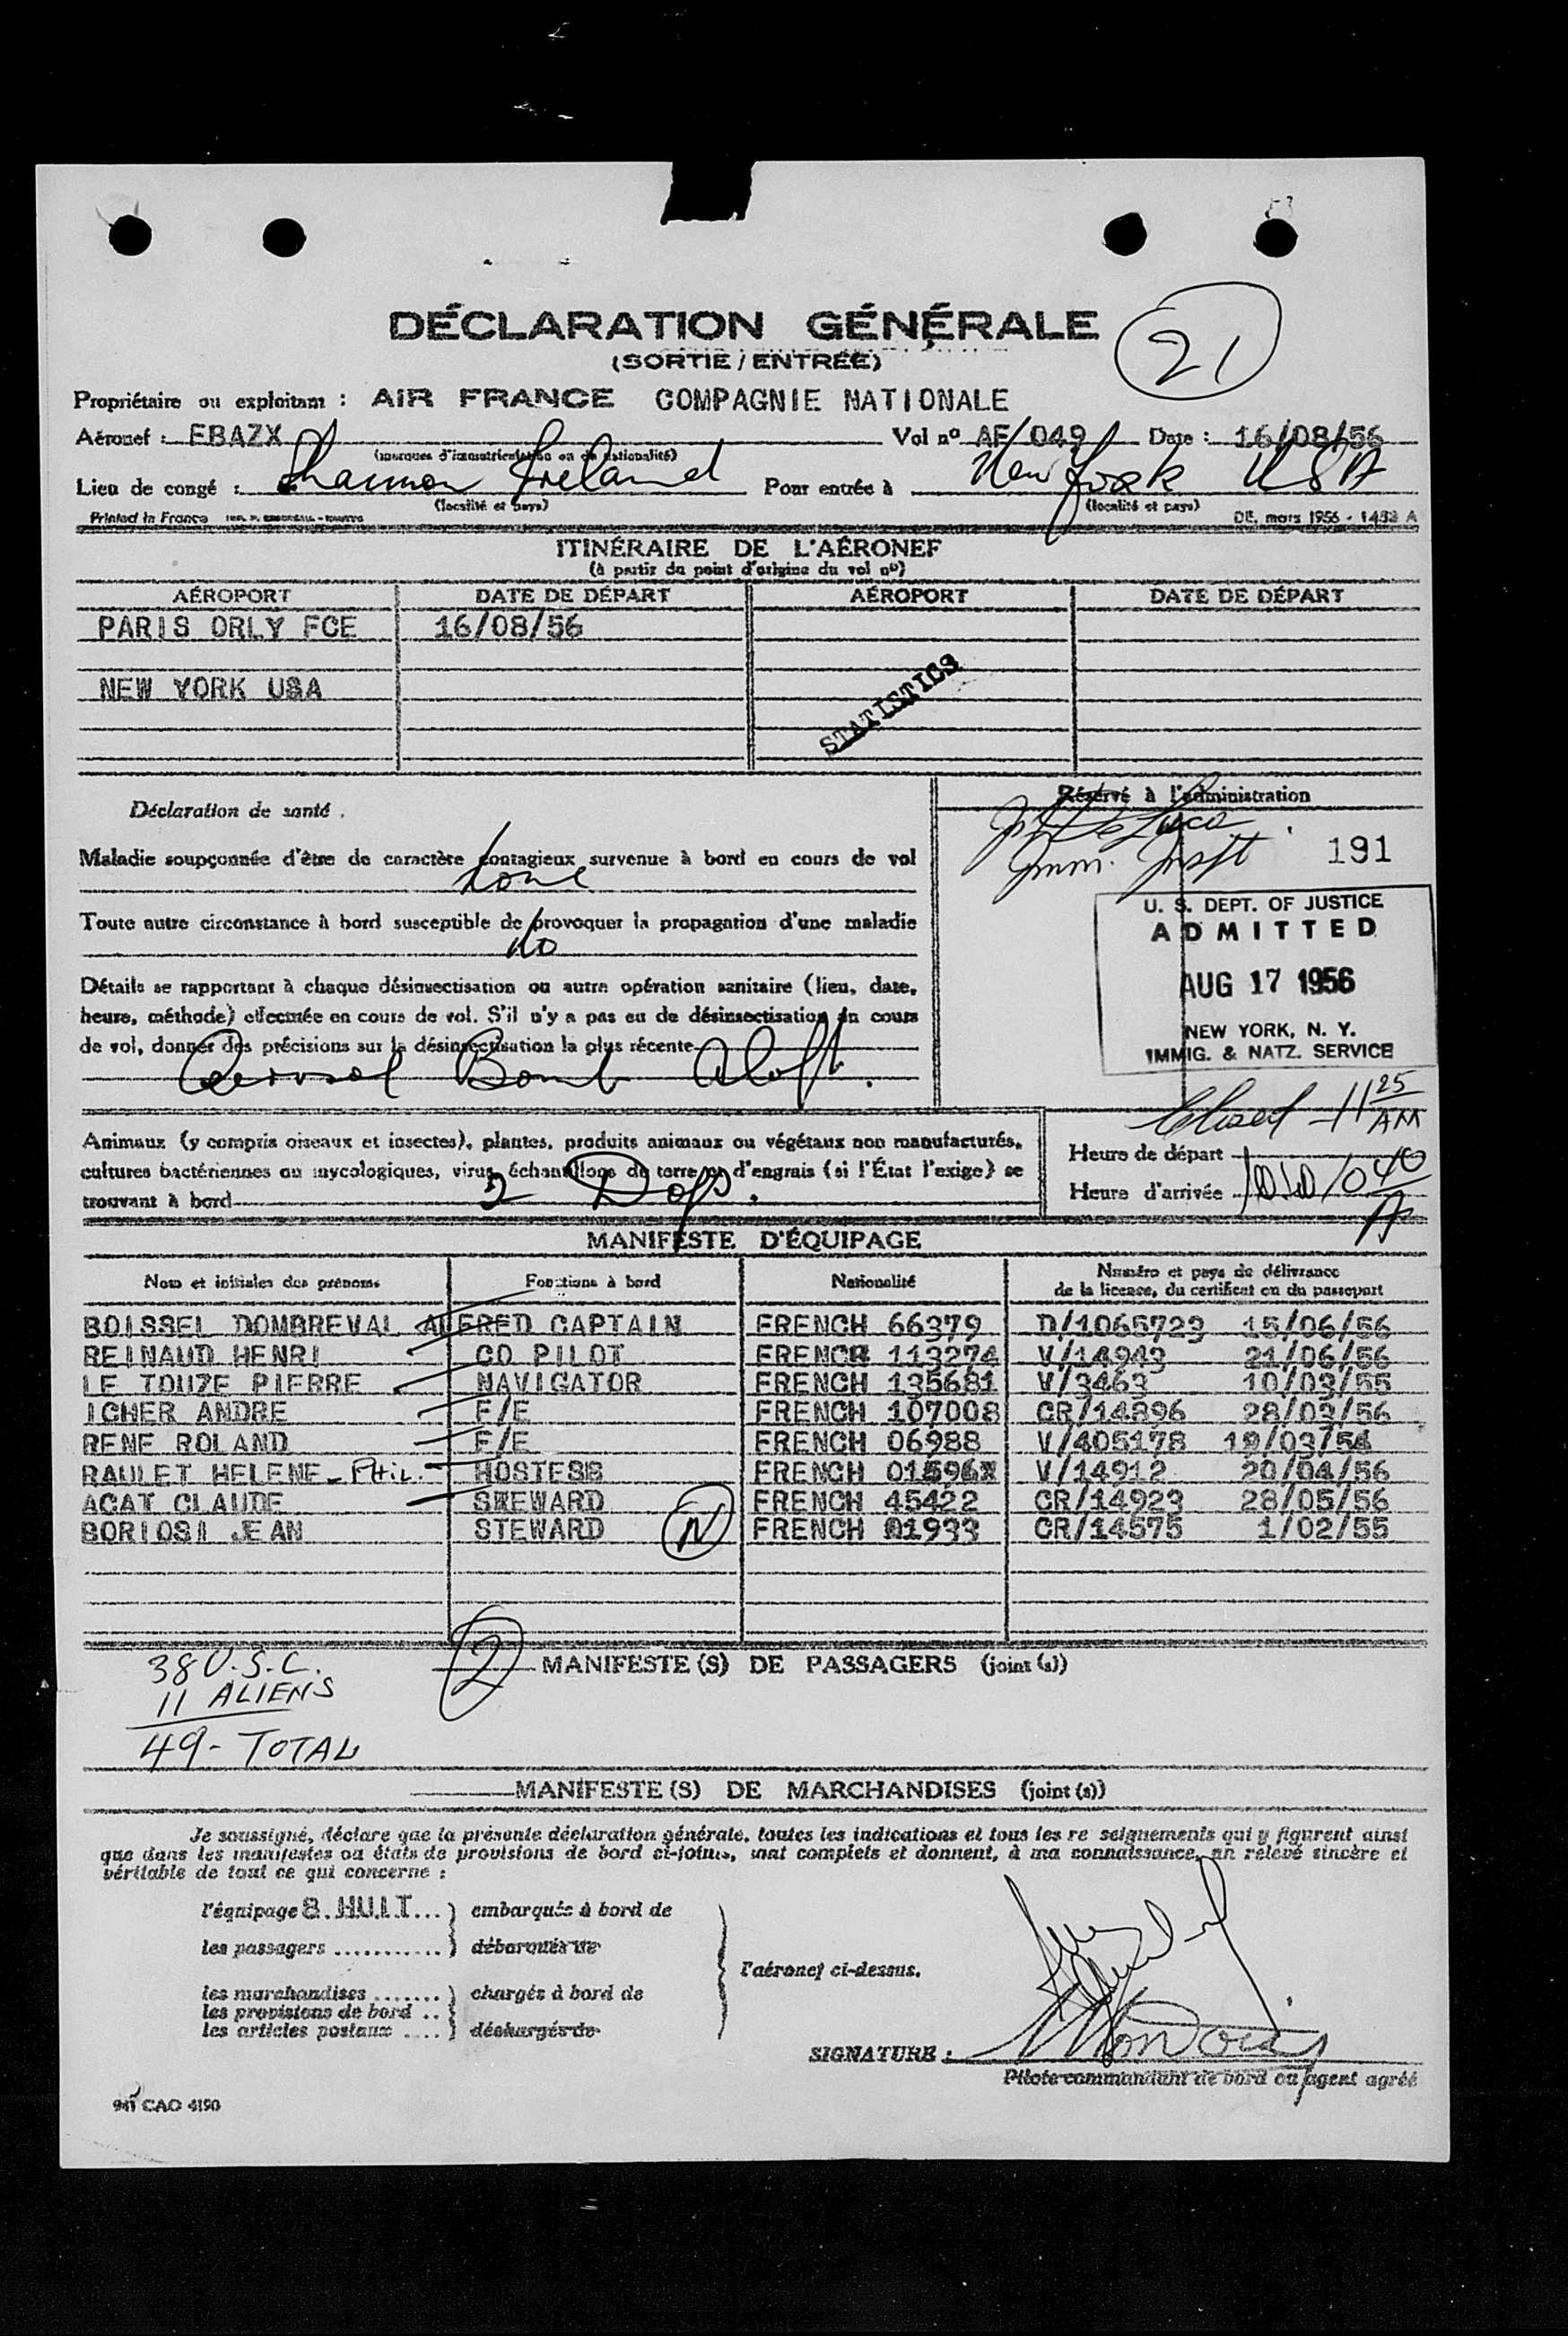 DÉCLARATION GÉNÉRALE
(SORTIE / ENTRÉE)
21
Propriétaire ou exploitant : AIR FRANCE COMPAGNIE NATIONALE
Aéronef : FBAZX Vol nº AF/049 Date : 16/08/56
(marques d'immatriculation ou de nationalité)
Lieu de congé : Shannon Ireland Pour entrée à New York USA
(localité et pays) (localité et pays)
Printed in France DE. mars 1956 - 1453 A
ITINÉRAIRE DE L'AÉRONEF
(à partir du point d'origine du vol nº)
AÉROPORT DATE DE DÉPART AÉROPORT DATE DE DÉPART
PARIS ORLY FCE 16/08/56
NEW YORK USA
STATISTICS
Déclaration de santé .
Réservé à l'administration
Maladie soupçonnée d'être de caractère contagieux survenue à bord en cours de vol
None
Imm. Inspt 191
Toute autre circonstance à bord susceptible de provoquer la propagation d'une maladie
No
U. S. DEPT. OF JUSTICE
ADMITTED
AUG 17 1956
NEW YORK, N. Y.
IMMIG. & NATZ. SERVICE
Détails se rapportant à chaque désinsectisation ou autre opération sanitaire (lieu, date,
heure, méthode) effectuée en cours de vol. S'il n'y a pas eu de désinsectisation en cours
de vol, donner des précisions sur la désinsectisation la plus récente
Aerosol Bomb Aloft.
Closed 11 25 AM
Animaux (y compris oiseaux et insectes), plantes, produits animaux ou végétaux non manufacturés,
cultures bactériennes ou mycologiques, virus, échantillons de terre ou d'engrais (si l'État l'exige) se
trouvant à bord 2 Dogs.
Heure de départ
Heure d'arrivée 1040 A
MANIFESTE D'ÉQUIPAGE
Nom et initiales des prénoms Fonctions à bord Nationalité Numéro et pays de délivrance
de la licence, du certificat ou du passeport
BOISSEL DOMBREVAL ALFRED CAPTAIN FRENCH 66379 D/1065729 15/06/56
REINAUD HENRI CO PILOT FRENCH 113274 V/14943 21/06/56
LE TOUZE PIERRE NAVIGATOR FRENCH 135681 V/3463 10/03/55
ICHER ANDRE F/E FRENCH 107008 CR/14896 28/03/56
RENE ROLAND F/E FRENCH 06988 V/405178 19/03/54
RAULET HELENE - PHIL. HOSTESS FRENCH V/14912 20/04/56
AGAT CLAUDE STEWARD FRENCH 45422 CR/14923 28/05/56
BORIOSI JEAN STEWARD N FRENCH 01933 CR/14575 1/02/55
38 U.S.C.
11 ALIENS
49 - TOTAL
2 MANIFESTE (S) DE PASSAGERS (joint (s))
MANIFESTE (S) DE MARCHANDISES (joint (s))
Je soussigné, déclare que la présente déclaration générale, toutes les indications et tous les re seignements qui y figurent ainsi
que dans les manifestes ou états de provisions de bord ci-joints, sont complets et donnent, à ma connaissance, un relevé sincère et
véritable de tout ce qui concerne :
l'équipage 8. HUIT... ) embarqués à bord de
les passagers ........... ) débarqués de
l'aéronef ci-dessus.
les marchandises ....... ) chargés à bord de
les provisions de bord ..
les articles postaux .... ) déchargés de
SIGNATURE :
Pilote commandant de bord ou agent agréé
941 CAO 4190